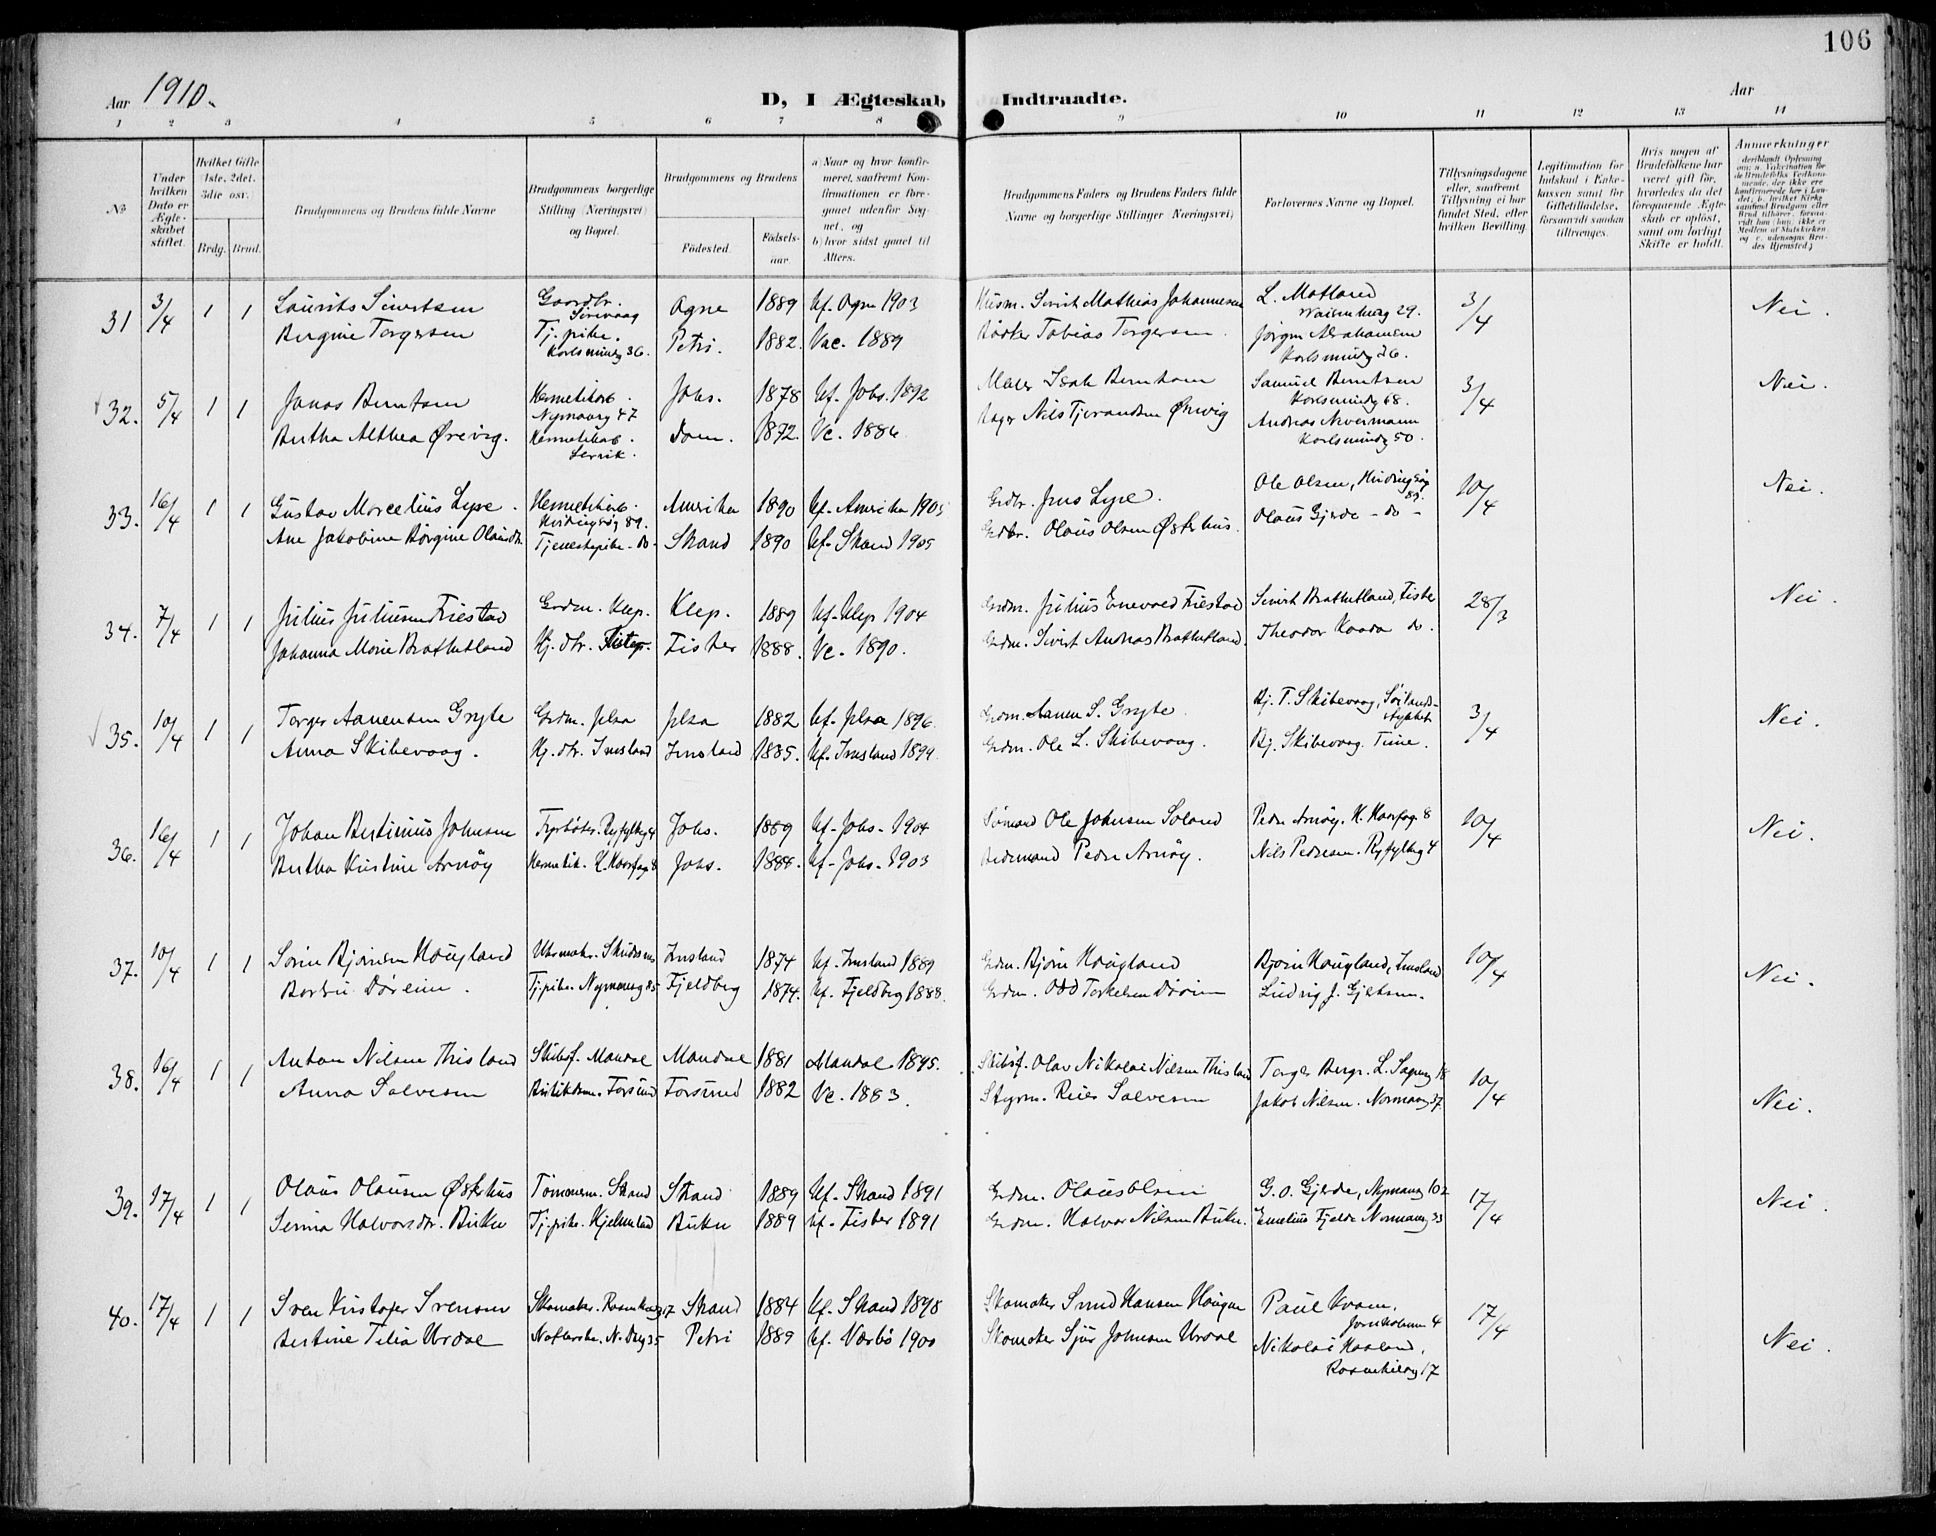 106
Aar 1910.
D, I Ægteskab Indtraadte.
Aar
1 2 3 4 5 6 7 8 9 10 11 12 13 14
No
Under hvilken Dato er Ægteskabet stiftet.
Hvilket Gifte 1ste, 2det, 3die osv.
Brdg. Brud.
Brudgommens og Brudens fulde Navne
Brudgommens borgerlige Stilling (Næringsvei) og Bopæl.
Brudgommens og Brudens
Fødested. Fødselsaar.
a) Naar og hvor konfirmeret, saafremt Konfirmationen er foregaaet udenfor Sognet, og
b) hvor sidst gaaet til Alters.
Brudgommens Faders og Brudens Faders fulde Navne og borgerlige Stillinger (Næringsvei)
Forlovernes Navne og Bopæl.
Tillysningsdagene eller, saafremt Tillysning ei har fundet Sted, efter hvilken Bevilling.
Legitimation for Indskud i Enkekassen samt for Giftetilladelse, forsaavidt saadan tiltrænges.
Hvis nogen af Brudefolkene har været gift før, hvorledes da det foregaaende Ægteskab er opløst, samt om lovligt Skifte er holdt.
Anmærkninger
31 3/4 1 1 Laurits Sivertsen Gaardbr. Sirevaag Ogne 1889 Kf. Ogne 1903 Husm. Sivert Mathias Johannesen L. Motland 29. 3/4 Nei.
Bergine Torgersen Tj.pike. 36. Petri. 1882. Vac. 1889 Tobias Torgersen Jørgen Abrahamsen 26.
32. 5/4 1 1 Jonas Berntsen Nymaarg 47 Johs. 1878 Kf. Johs. 1892 Maler Isak Berntsen Samuel Berntsen 68. 3/4 Nei.
Bertha Althea Ørevig. Dom. 1872. Vc. 1886 Andreas 50.
33. 16/4 1 1 Gustav Marcelius Lyse. 89. Amerika 1890 Kf. Amerika 1905 Grdbr. Jens Lyse. Ole Olsen, 89. 10/4 Nei.
Ane Jakobine Børgine Olausdtr. Tjenestepike - do - Strand 1890 Kf. Strand 1905 Grdbr. Olaus Olsen Østerhus. Olaus Gjerde - do -
34. 7/4 1 1 Julius Juliussen Friestad Grdm. Klep. Klep. 1889 Kf. Klep 1904 Grdm. Julius Enevald Friestad Sivert Brattetland, Fister 28/3 Nei.
Johanna Marie Brattetland Hj. dtr. Fister 1888. Vc. 1890. Grdm. Sivert Andreas Brattetland Theodor Kaada do.
35. 10/4 1 1 Torger Aanensen Gryte Grdm. Jelsa Jelsa 1882 Kf. Jelsa 1896. Grdm. Aanen S. Gryte. Bj. T. Skibevaag, 3/4 Nei.
Anna Skibevaag. Hj. dtr. Imsland Imsland 1885. Kf. Imsland 1899. Grdm. Ole L. Skibevaag. Bj. Skibevaag. Time.
36. 16/4 1 1 Johan Bertinius Johnsen Fyrbøter. Ryfylkeg 4 Johs. 1889 Kf. Johs. 1904 Sømand Ole Johnsen Soland Peder Arnøy. H. Haarfag. 8 10/4 Nei.
Bertha Kristine Arnøy Hermetik. H. Haarfag. 8 Johs. 1888. Kf. Johs. 1903 Peder Arnøy. Nils Pedersen. Ryfylkeg 4
37. 10/4 1 1 Søren Bjørnsen Haugland Uhrmaker. Imsland 1874 Kf. Imsland 1889 Grdm. Bjørn Haugland Bjørn Haugland, Imsland 10/4 Nei.
Tj.pike. Fjeldberg 1874. Kf. Fjeldberg 1888. Grdm. Odd Torkelsen Ludvig J.
38. 16/4 1 1 Anton Nilsen Thisland Skibsf. Mandal Mandal 1881 Mandal 1895. Skibsf. Olav Nikolai Nilsen Thisland Torger Berge. 18 10/4 Nei.
Anna Salvesen Forsund Forsund 1882 Vc. 1883. Styrm. Reier Salvesen Jakob Nilsen.
39. 17/4 1 1 Olaus Olausen Østerhus Tømmerm. Strand Strand 1889 Kf. Strand 1891 Grdm. Olaus Olsen G. O. Gjerde, Nymarg 102 17/4 Nei.
Serina Halvorsdtr. Tj.pike. Hjelmeland 1889 Kf. Fister 1891 Grdm. Halvor Nilsen Emelius Fjelde 33
40. 17/4 1 1 Sven Kristofer Svensen Skomaker. 17 Strand 1884 Kf. Strand 1898 Skomaker Svend Hansen Haugen Paul Kvam, 4 17/4 Nei.
Bertine Telia Urdal 35 Petri 1889 Kf. Nærbø 1900 Skomaker Sjur Johnsen Urdal Nikolai Haaland, 17